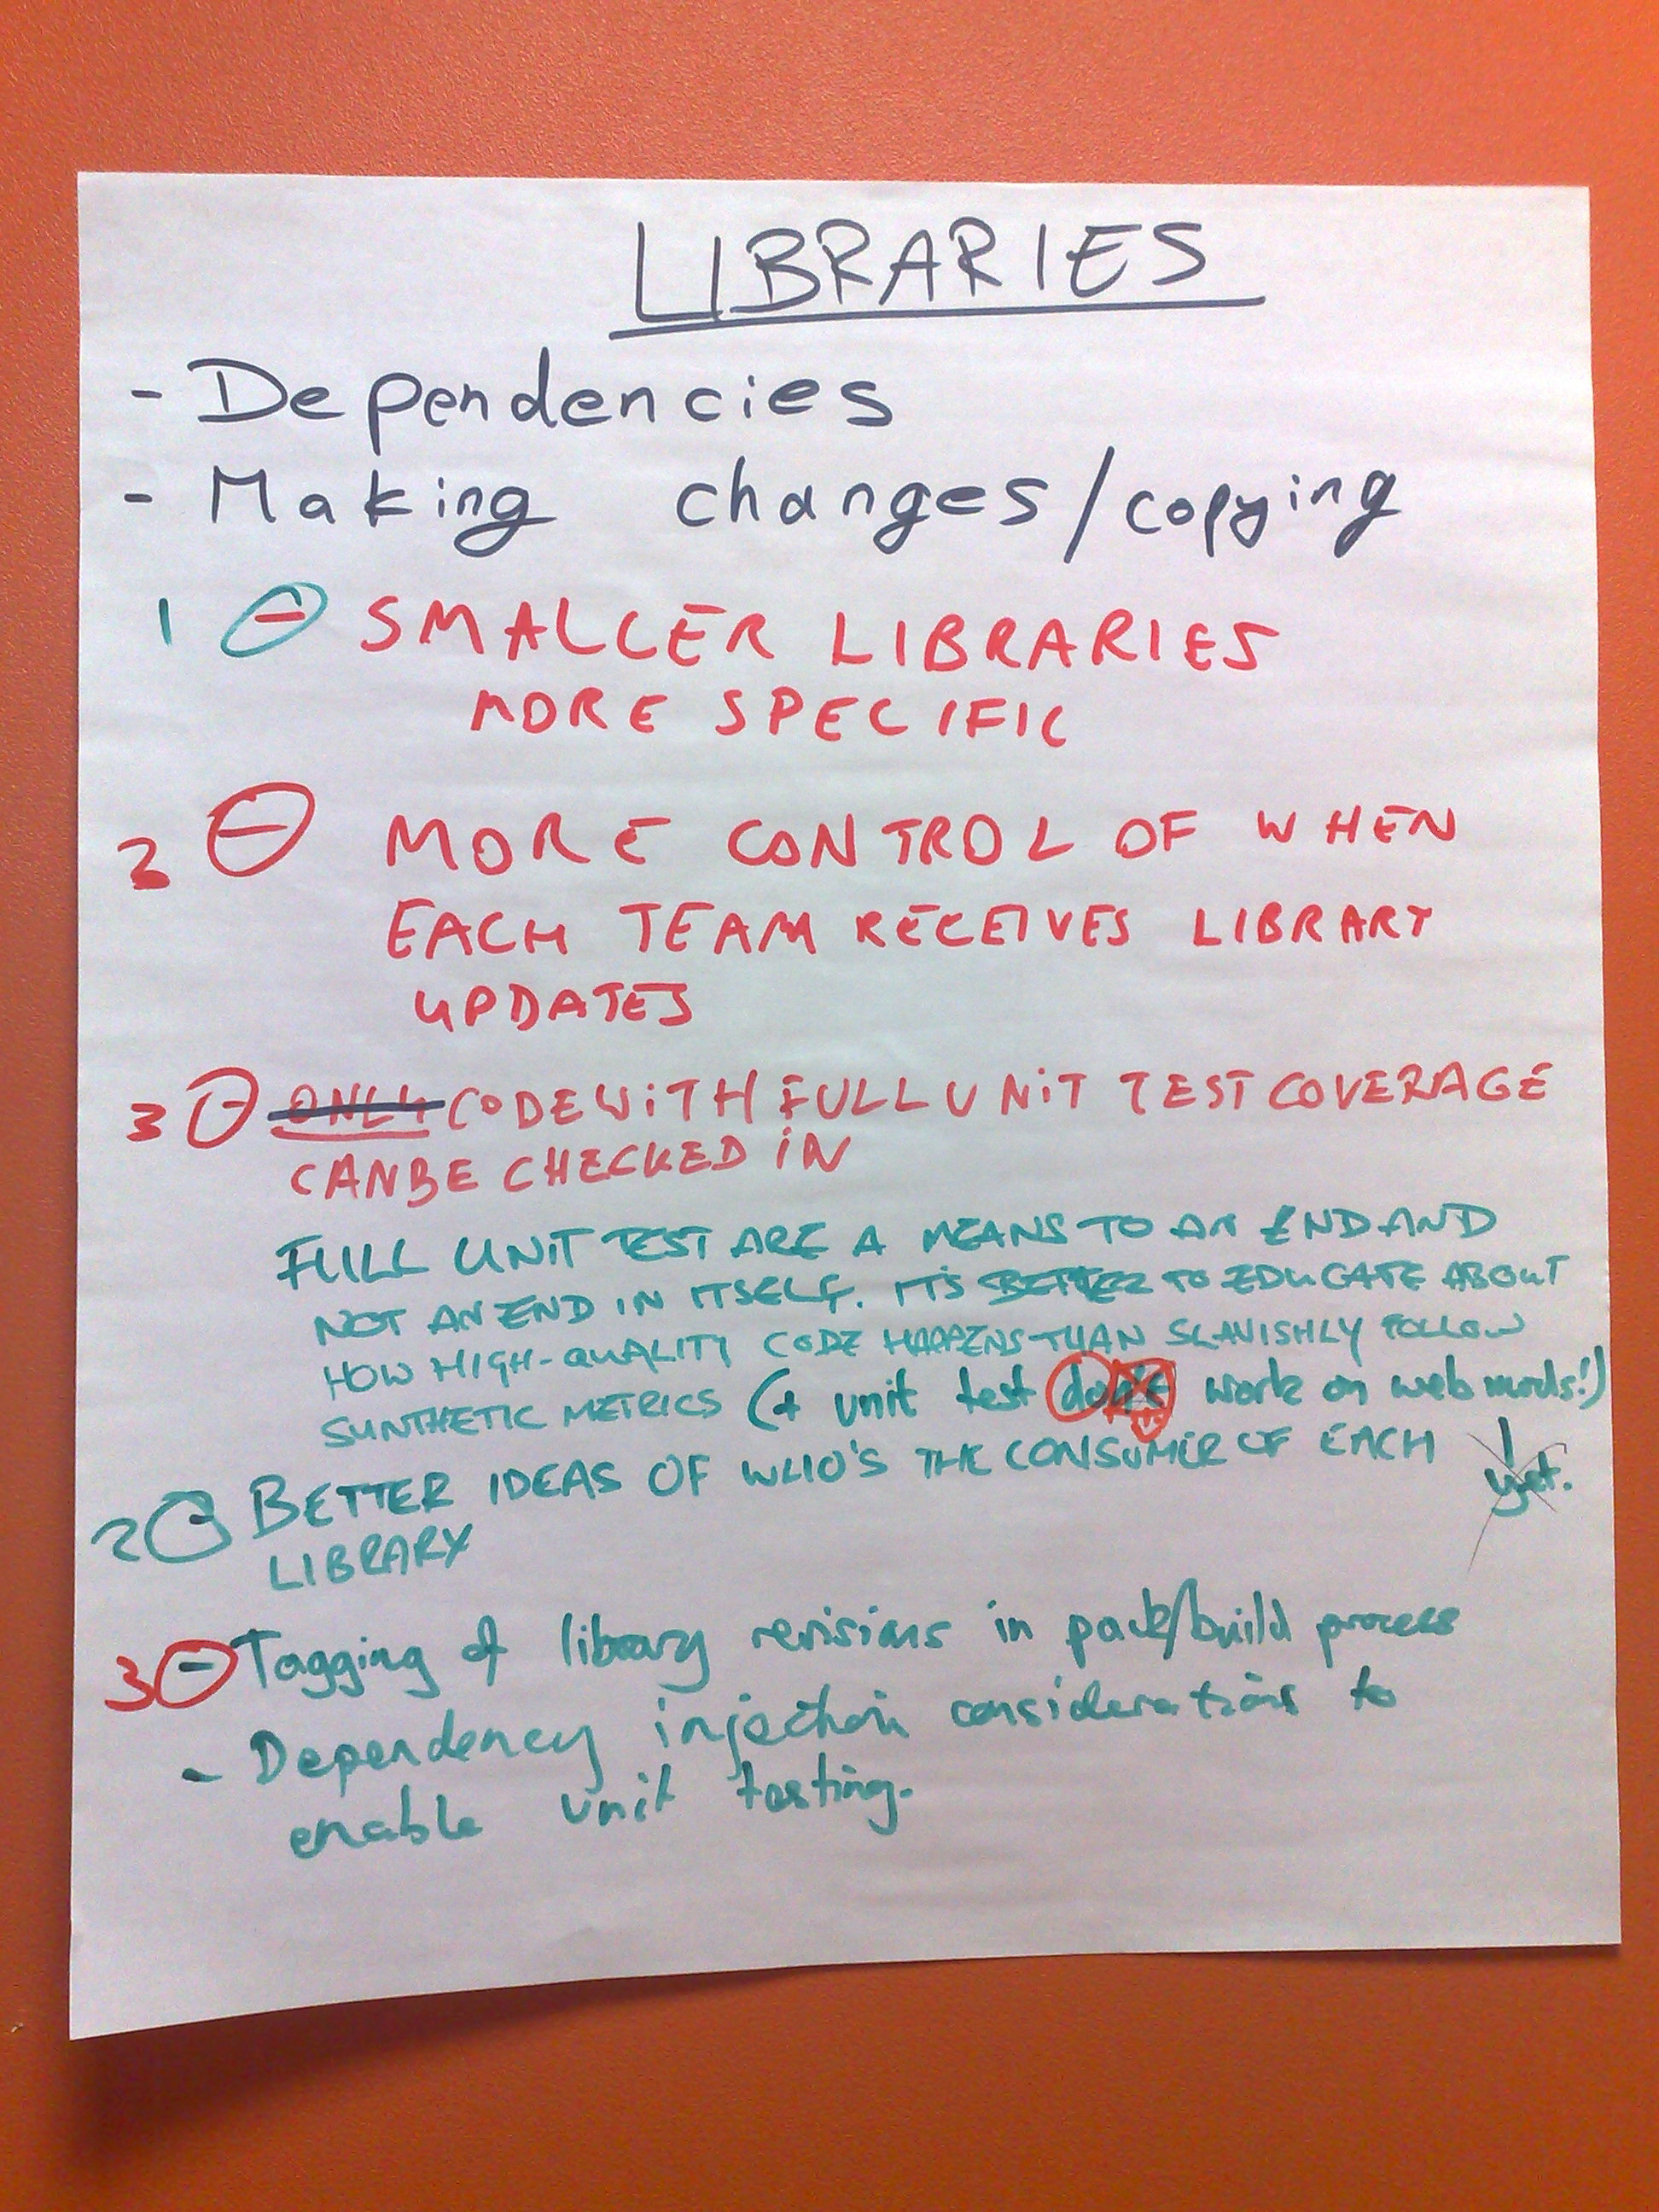 LIBRARIES
- Dependencies
- Making changes/copying
1 - SMALLER LIBRARIES
MORE SPECIFIC
2 - MORE CONTROL OF WHEN
EACH TEAM RECEIVES LIBRARY
UPDATES
3 - ONLY CODE WITH FULL UNIT TEST COVERAGE
CAN BE CHECKED IN
FULL UNIT TEST ARE A MEANS TO AN END AND
NOT AN END IN ITSELF. IT'S BETTER TO EDUCATE ABOUT
HOW HIGH-QUALITY CODE HAPPENS THAN SLAVISHLY FOLLOW
SYNTHETIC METRICS (+ unit test don't work on web mods!)
yet.
2 - BETTER IDEAS OF WHO'S THE CONSUMER OF EACH
LIBRARY
3 - Tagging of library revisions in pack/build process
- Dependency injection considerations to
enable unit testing.